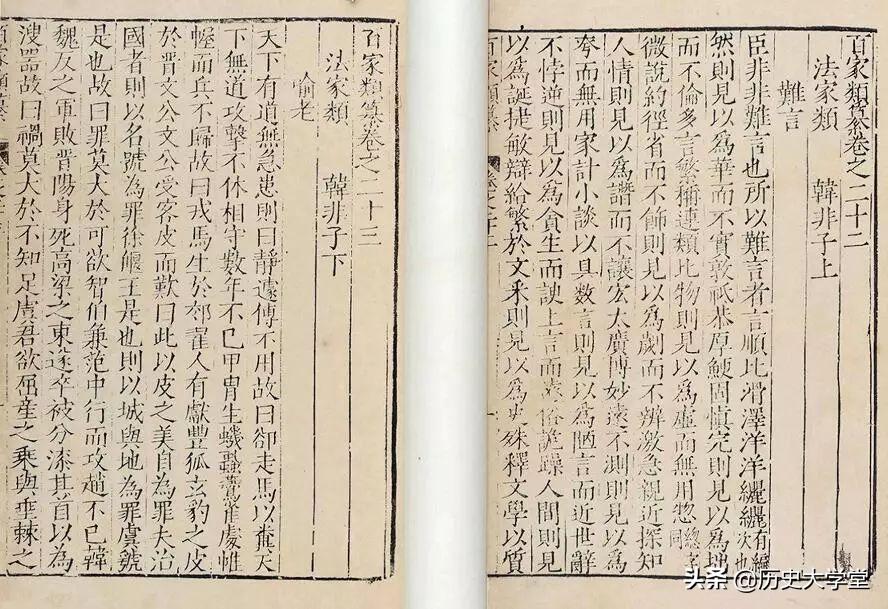 百家類纂卷之二十二
法家類　韓非子上
難言
臣非非難言也所以難言者言順比滑澤洋洋纚纚有編次也
然則見以為華而不實敦祇恭厚鯁固愼完則見以為拙
而不倫多言繁稱連類比物則見以為虛而無用惣總字同
微說約徑省而不飾則見以為劌而不辨激急親近探知
人情則見以為譖而不讓宏大廣博妙遠不測則見以為
夸而無用家計小談以具數言則見以為陋言而近世辭
不悖逆則見以為貪生而諛上言而遠俗詭躁人間則見
以為誕捷敏辯給繁於文采則見以為史殊釋文學以質
百家類纂卷之二十三
法家類　韓非子下
喻老
天下有道無急患則曰靜遽傳不用故曰卻走馬以糞天
下無道攻擊不休相守數年不已甲冑生蟣蝨鷰雀處帷
幄而兵不歸故曰戎馬生於郊翟人有獻豐狐玄豹之皮
於晉文公文公受客皮而歎曰此以皮之美自為罪夫治
國者則以名號為罪徐偃王是也則以城與地為罪虞虢
是也故曰罪莫大於可欲智伯兼范中行而攻趙不已韓
魏反之軍敗晉陽身死高梁之東遂卒被分漆其首以為
溲器故曰禍莫大於不知足虞君欲屈產之乘與垂棘之
头条 @历史大学堂